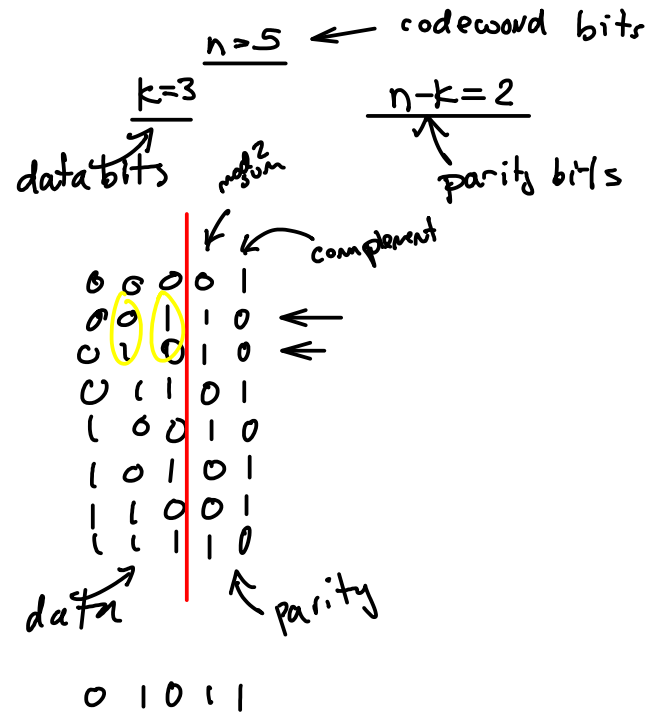 n=5 codeword bits
k=3 n-k=2
data bits mod 2 sum parity bits
complement
0 0 0 0 1
0 0 1 1 0
0 1 0 1 0
0 1 1 0 1
1 0 0 1 0
1 0 1 0 1
1 1 0 0 1
1 1 1 1 0
data parity
0 1 0 1 1